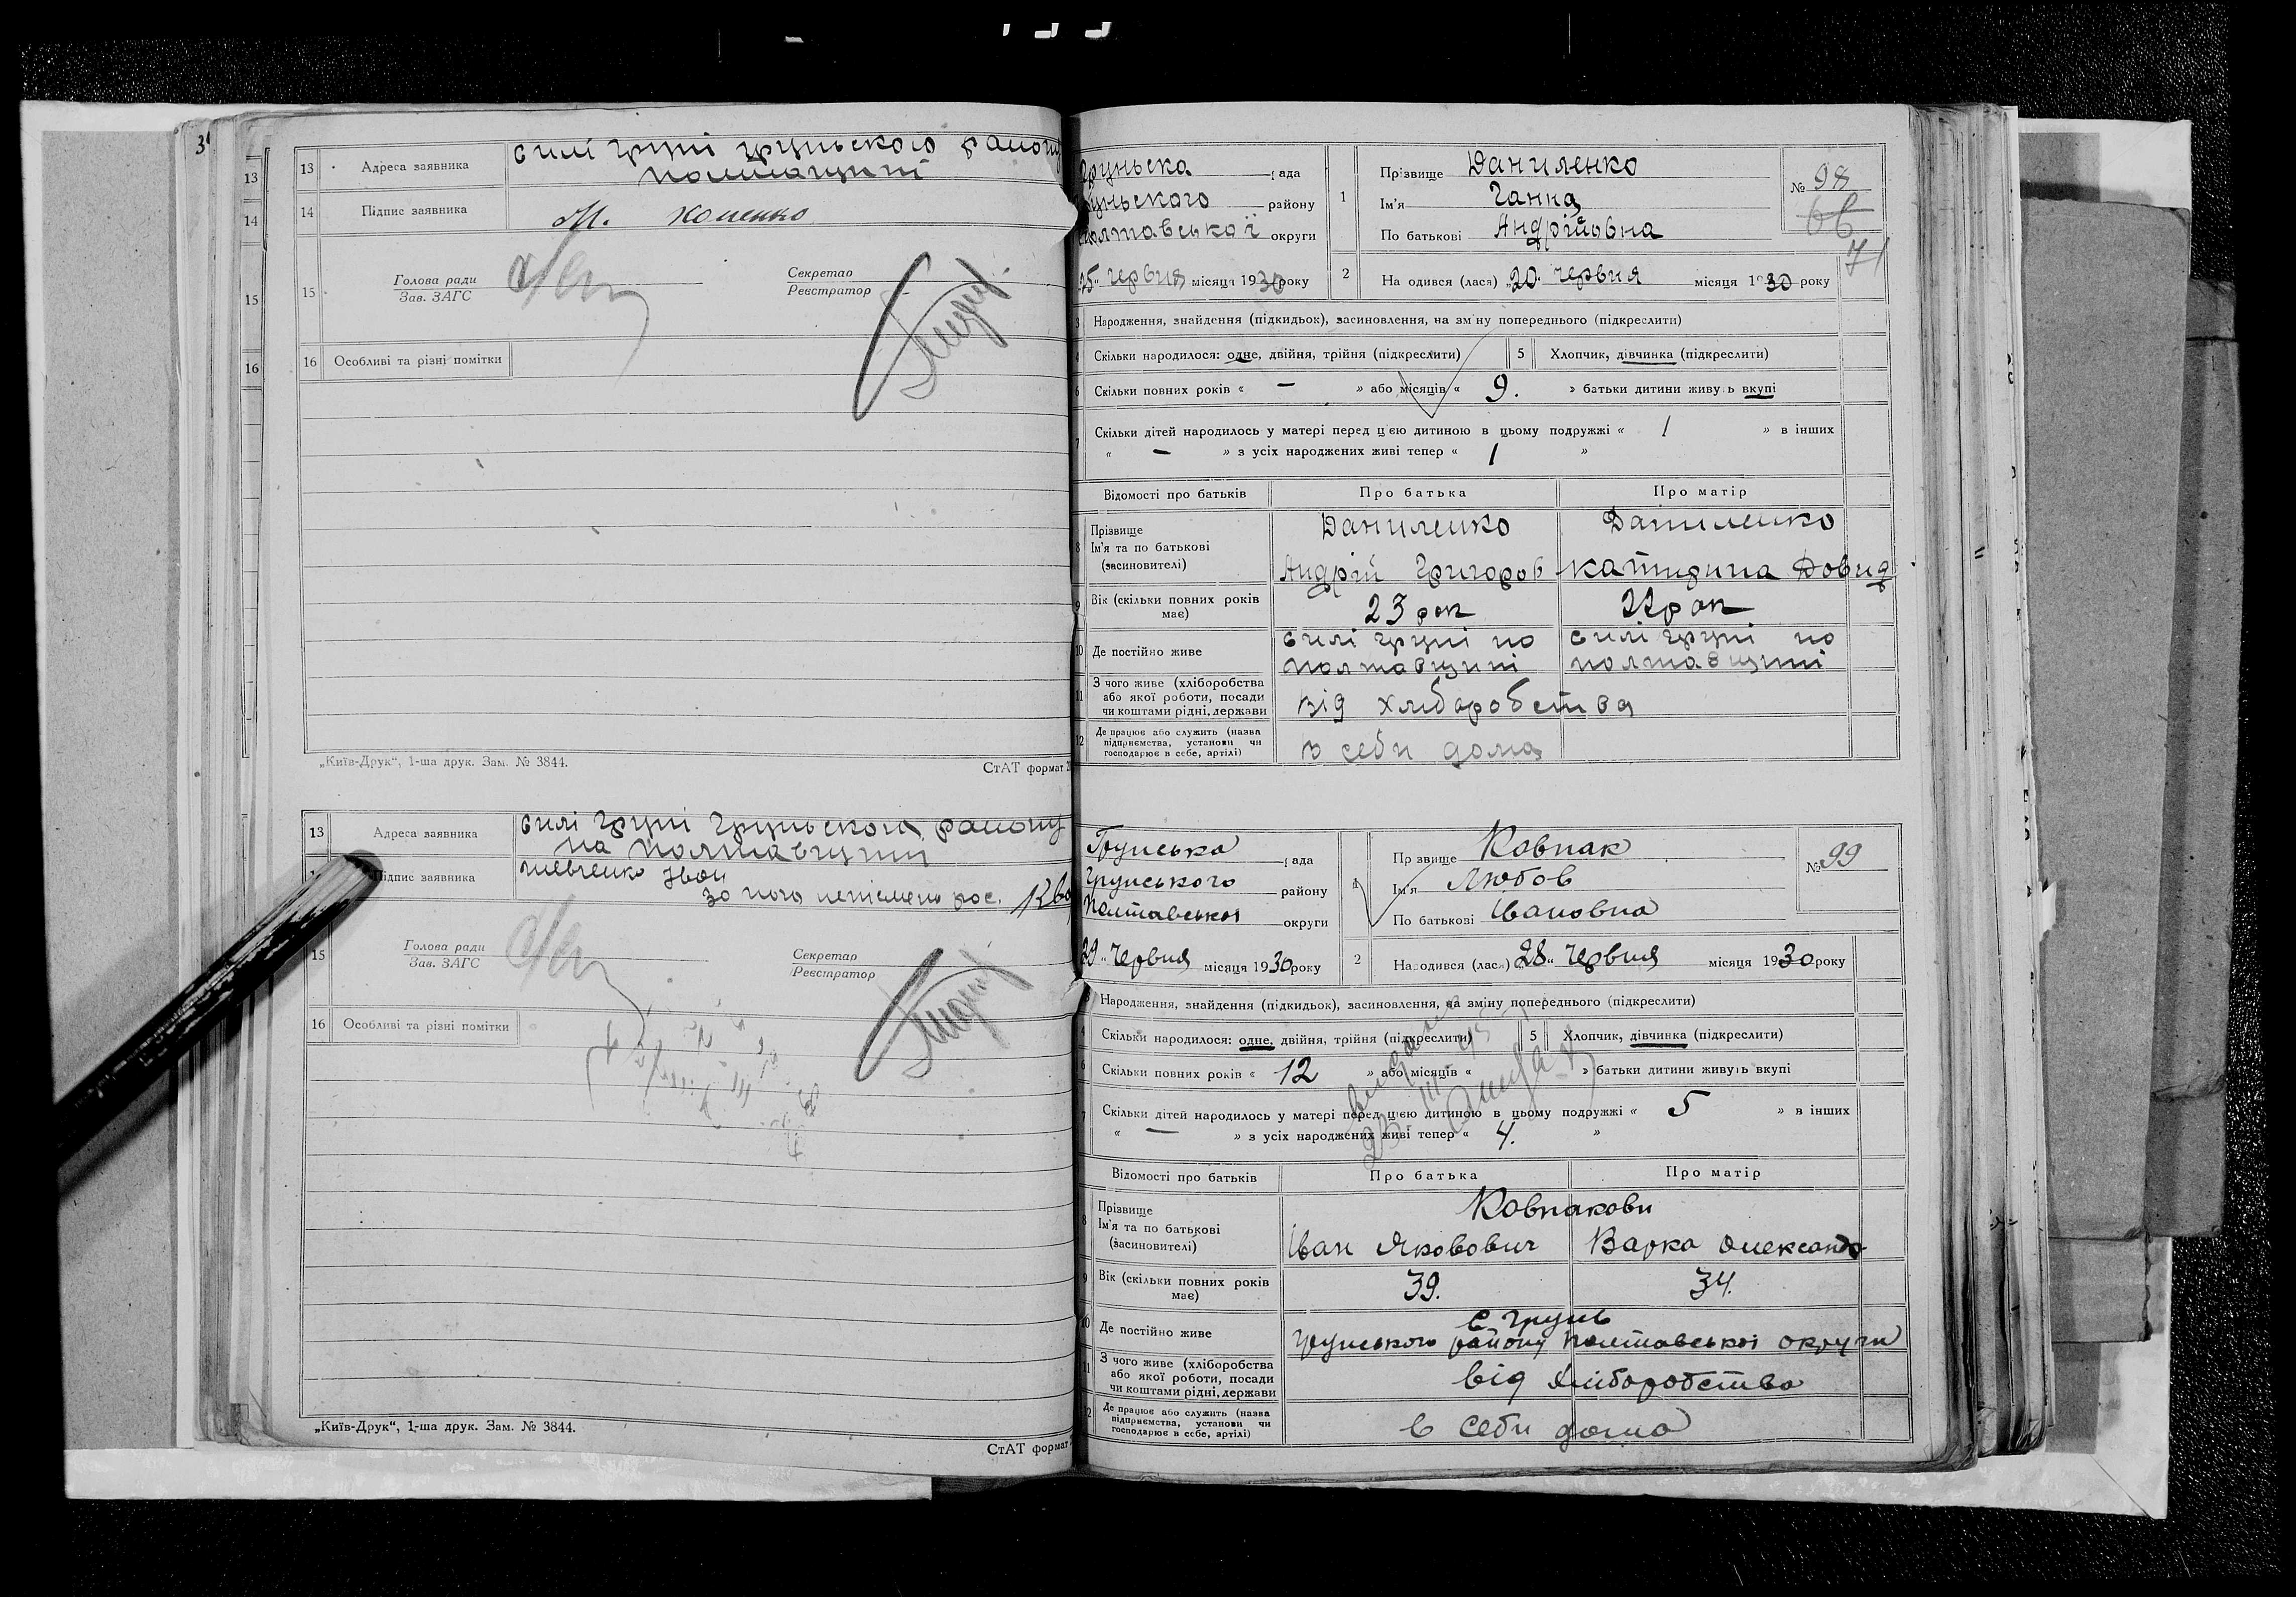 31
13
14
15
16
13 Адреса заявника селі Груні Груньського району
Полтавщині
14 Підпис заявника М. Копенко
15 Голова ради
Зав. ЗАГС
Секретар
Реєстратор
16 Особливі та різні помітки
„Київ-Друк“, 1-ша друк. Зам. № 3844.
СтАТ формат
13 Адреса заявника селі Груні Груньского району
на Полтавщині
Підпис заявника Шевченко Іван
за його неписьмен. рос.
15 Голова ради
Зав. ЗАГС
Секретар
Реєстратор
16 Особливі та різні помітки
„Київ-Друк“, 1-ша друк. Зам. № 3844.
СтАТ формат
Груньска рада
уньского району
Полтавської округи
25 червня місяця 1930 року
1 Прізвище Даниленко
Ім'я Ганна
По батькові Андрійовна
№ 98
66
71
2 Народився (лася) „20 червня місяця 1930 року
3 Народження, знайдення (підкидьок), засиновлення, на зміну попереднього (підкреслити)
4 Скільки народилося: одне, двійня, трійня (підкреслити) 5 Хлопчик, дівчинка (підкреслити)
6 Скільки повних років « — » або місяців « 9. » батьки дитини живуть вкупі
7 Скільки дітей народилось у матері перед цією дитиною в цьому подружжі « 1 » в інших
« — » з усіх народжених живі тепер « 1 »
Відомості про батьків Про батька Про матір
8 Прізвище
Ім'я та по батькові
(засиновителі)
Даниленко Даниленко
Андрій Григоров Катирина Довид
9 Вік (скільки повних років має) 23 рок 22 рок
10 Де постійно живе селі Груні по селі Груні по
Полтавщині Полтавщині
11 З чого живе (хліборобства
або якої роботи, посади
чи коштами рідні, держави
від хліборобства
12 Де працює або служить (назва
підприємства, установи чи
господарює в себе, артілі)
в себи дома
Грунська рада
Грунського району
Полтавськоі округи
29 „ Червня місяця 1930 року
1 Прізвище Ковпак
Ім'я Любов
По батькові Івановна
№ 99
2 Народився (лася) 28 „ Червня місяця 1930 року
3 Народження, знайдення (підкидьок), засиновлення, на зміну попереднього (підкреслити)
4 Скільки народилося: одне, двійня, трійня (підкреслити) 5 Хлопчик, дівчинка (підкреслити)
6 Скільки повних років « 12 » або місяців « » батьки дитини живуть вкупі
7 Скільки дітей народилось у матері перед цією дитиною в цьому подружжі « 5 » в інших
« — » з усіх народжених живі тепер « 4. »
Відомості про батьків Про батька Про матір
8 Прізвище
Ім'я та по батькові
(засиновителі)
Ковпакови
Іван Якович Варка Олександ
9 Вік (скільки повних років має) 39. 34.
10 Де постійно живе с. Грунь
Грунського району Полтавськоі округи
11 З чого живе (хліборобства
або якої роботи, посади
чи коштами рідні, держави
від хліборобства
12 Де працює або служить (назва
підприємства, установи чи
господарює в себе, артілі)
в себи дома